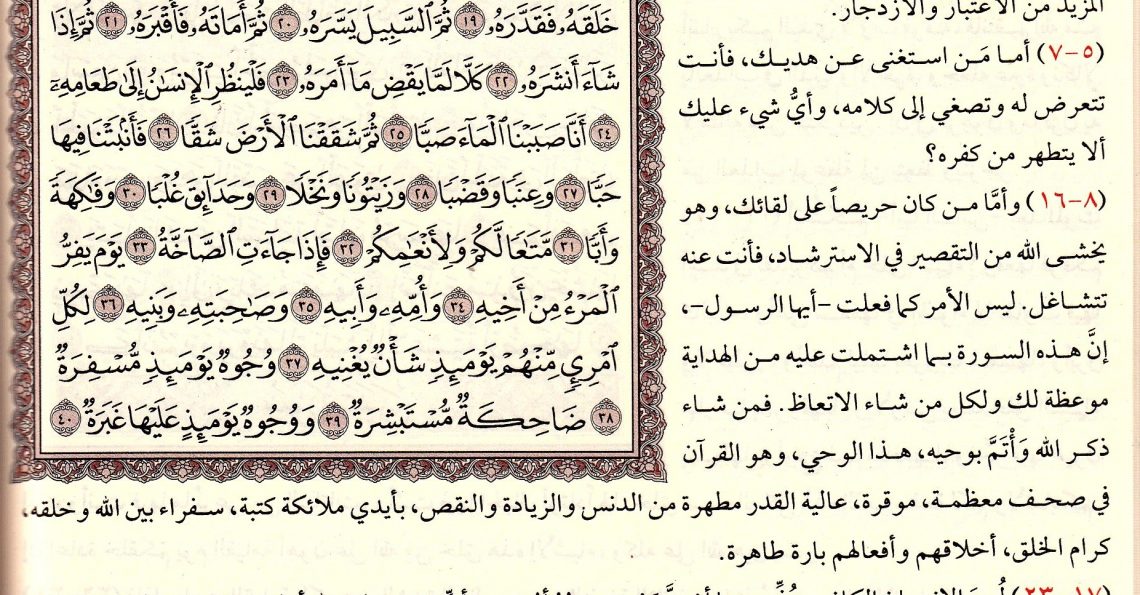 خَلَقَهُۥ فَقَدَّرَهُۥ ١٩ ثُمَّ ٱلسَّبِيلَ يَسَّرَهُۥ ٢٠ ثُمَّ أَمَاتَهُۥ فَأَقْبَرَهُۥ ٢١ ثُمَّ إِذَا
شَآءَ أَنشَرَهُۥ ٢٢ كَلَّا لَمَّا يَقْضِ مَآ أَمَرَهُۥ ٢٣ فَلْيَنظُرِ ٱلْإِنسَٰنُ إِلَىٰ طَعَامِهِۦٓ
٢٤ أَنَّا صَبَبْنَا ٱلْمَآءَ صَبًّا ٢٥ ثُمَّ شَقَقْنَا ٱلْأَرْضَ شَقًّا ٢٦ فَأَنۢبَتْنَا فِيهَا
حَبًّا ٢٧ وَعِنَبًا وَقَضْبًا ٢٨ وَزَيْتُونًا وَنَخْلًا ٢٩ وَحَدَآئِقَ غُلْبًا ٣٠ وَفَٰكِهَةً
وَأَبًّا ٣١ مَّتَٰعًا لَّكُمْ وَلِأَنْعَٰمِكُمْ ٣٢ فَإِذَا جَآءَتِ ٱلصَّآخَّةُ ٣٣ يَوْمَ يَفِرُّ
ٱلْمَرْءُ مِنْ أَخِيهِ ٣٤ وَأُمِّهِۦ وَأَبِيهِ ٣٥ وَصَٰحِبَتِهِۦ وَبَنِيهِ ٣٦ لِكُلِّ
ٱمْرِئٍ مِّنْهُمْ يَوْمَئِذٍ شَأْنٌ يُغْنِيهِ ٣٧ وُجُوهٌ يَوْمَئِذٍ مُّسْفِرَةٌ
٣٨ ضَاحِكَةٌ مُّسْتَبْشِرَةٌ ٣٩ وَوُجُوهٌ يَوْمَئِذٍ عَلَيْهَا غَبَرَةٌ ٤٠
المزيد من الاعتبار والازدجار.
(٥-٧) أما مَن استغنى عن هديك، فأنت
تتعرض له وتصغي إلى كلامه، وأيُّ شيء عليك
ألا يتطهر من كفره؟
(٨-١٦) وأمَّا من كان حريصاً على لقائك، وهو
يخشى الله من التقصير في الاسترشاد، فأنت عنه
تتشاغل. ليس الأمر كما فعلت -أيها الرسول-،
إنَّ هذه السورة بما اشتملت عليه من الهداية
موعظة لك ولكل من شاء الاتعاظ. فمن شاء
ذكر الله وَأْتَمَّ بوحيه، هذا الوحي، وهو القرآن
في صحف معظمة، موقرة، عالية القدر مطهرة من الدنس والزيادة والنقص، بأيدي ملائكة كتبة، سفراء بين الله وخلقه،
كرام الخلق، أخلاقهم وأفعالهم بارة طاهرة.
(١٧-٢٣) لُعِنَ الإنسان الكافر